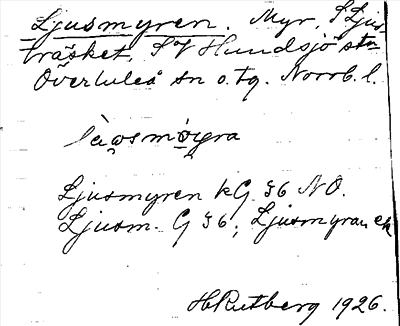 Ljusmyren. Myr, S Ljus-
träsket, SV Hundsjö stn
Överluleå sn o. tg. Norrb. l.
Ljusmyren kG 36 NO.
Ljusm. G 36; Ljusmyran ek
H Rutberg 1926.